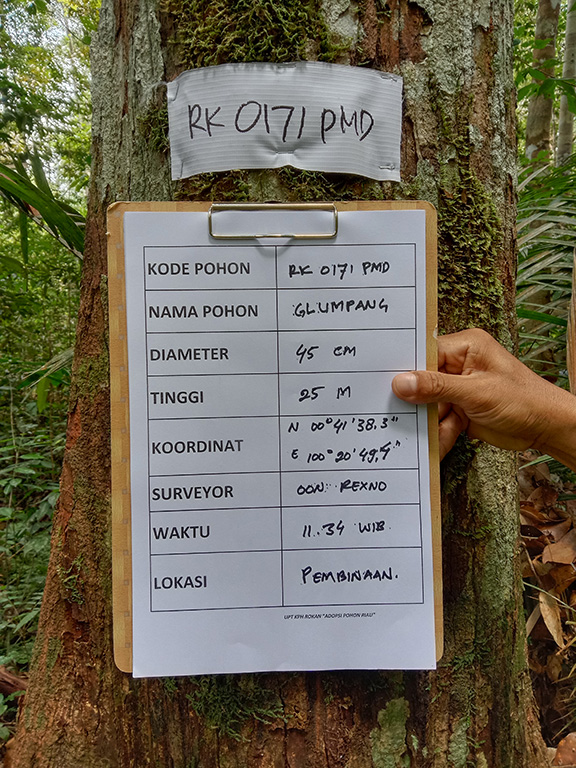 RK 0171 PMD
KODE POHON RK 0171 PMD
NAMA POHON GLUMPANG
DIAMETER 45 CM
TINGGI 25 M
KOORDINAT N 00° 41' 38.3"
E 100° 20' 49,4"
SURVEYOR OON REXNO
WAKTU 11.34 WIB
LOKASI PEMBINAAN.
UPT KPH ROKAN "ADOPSI POHON RIAU"